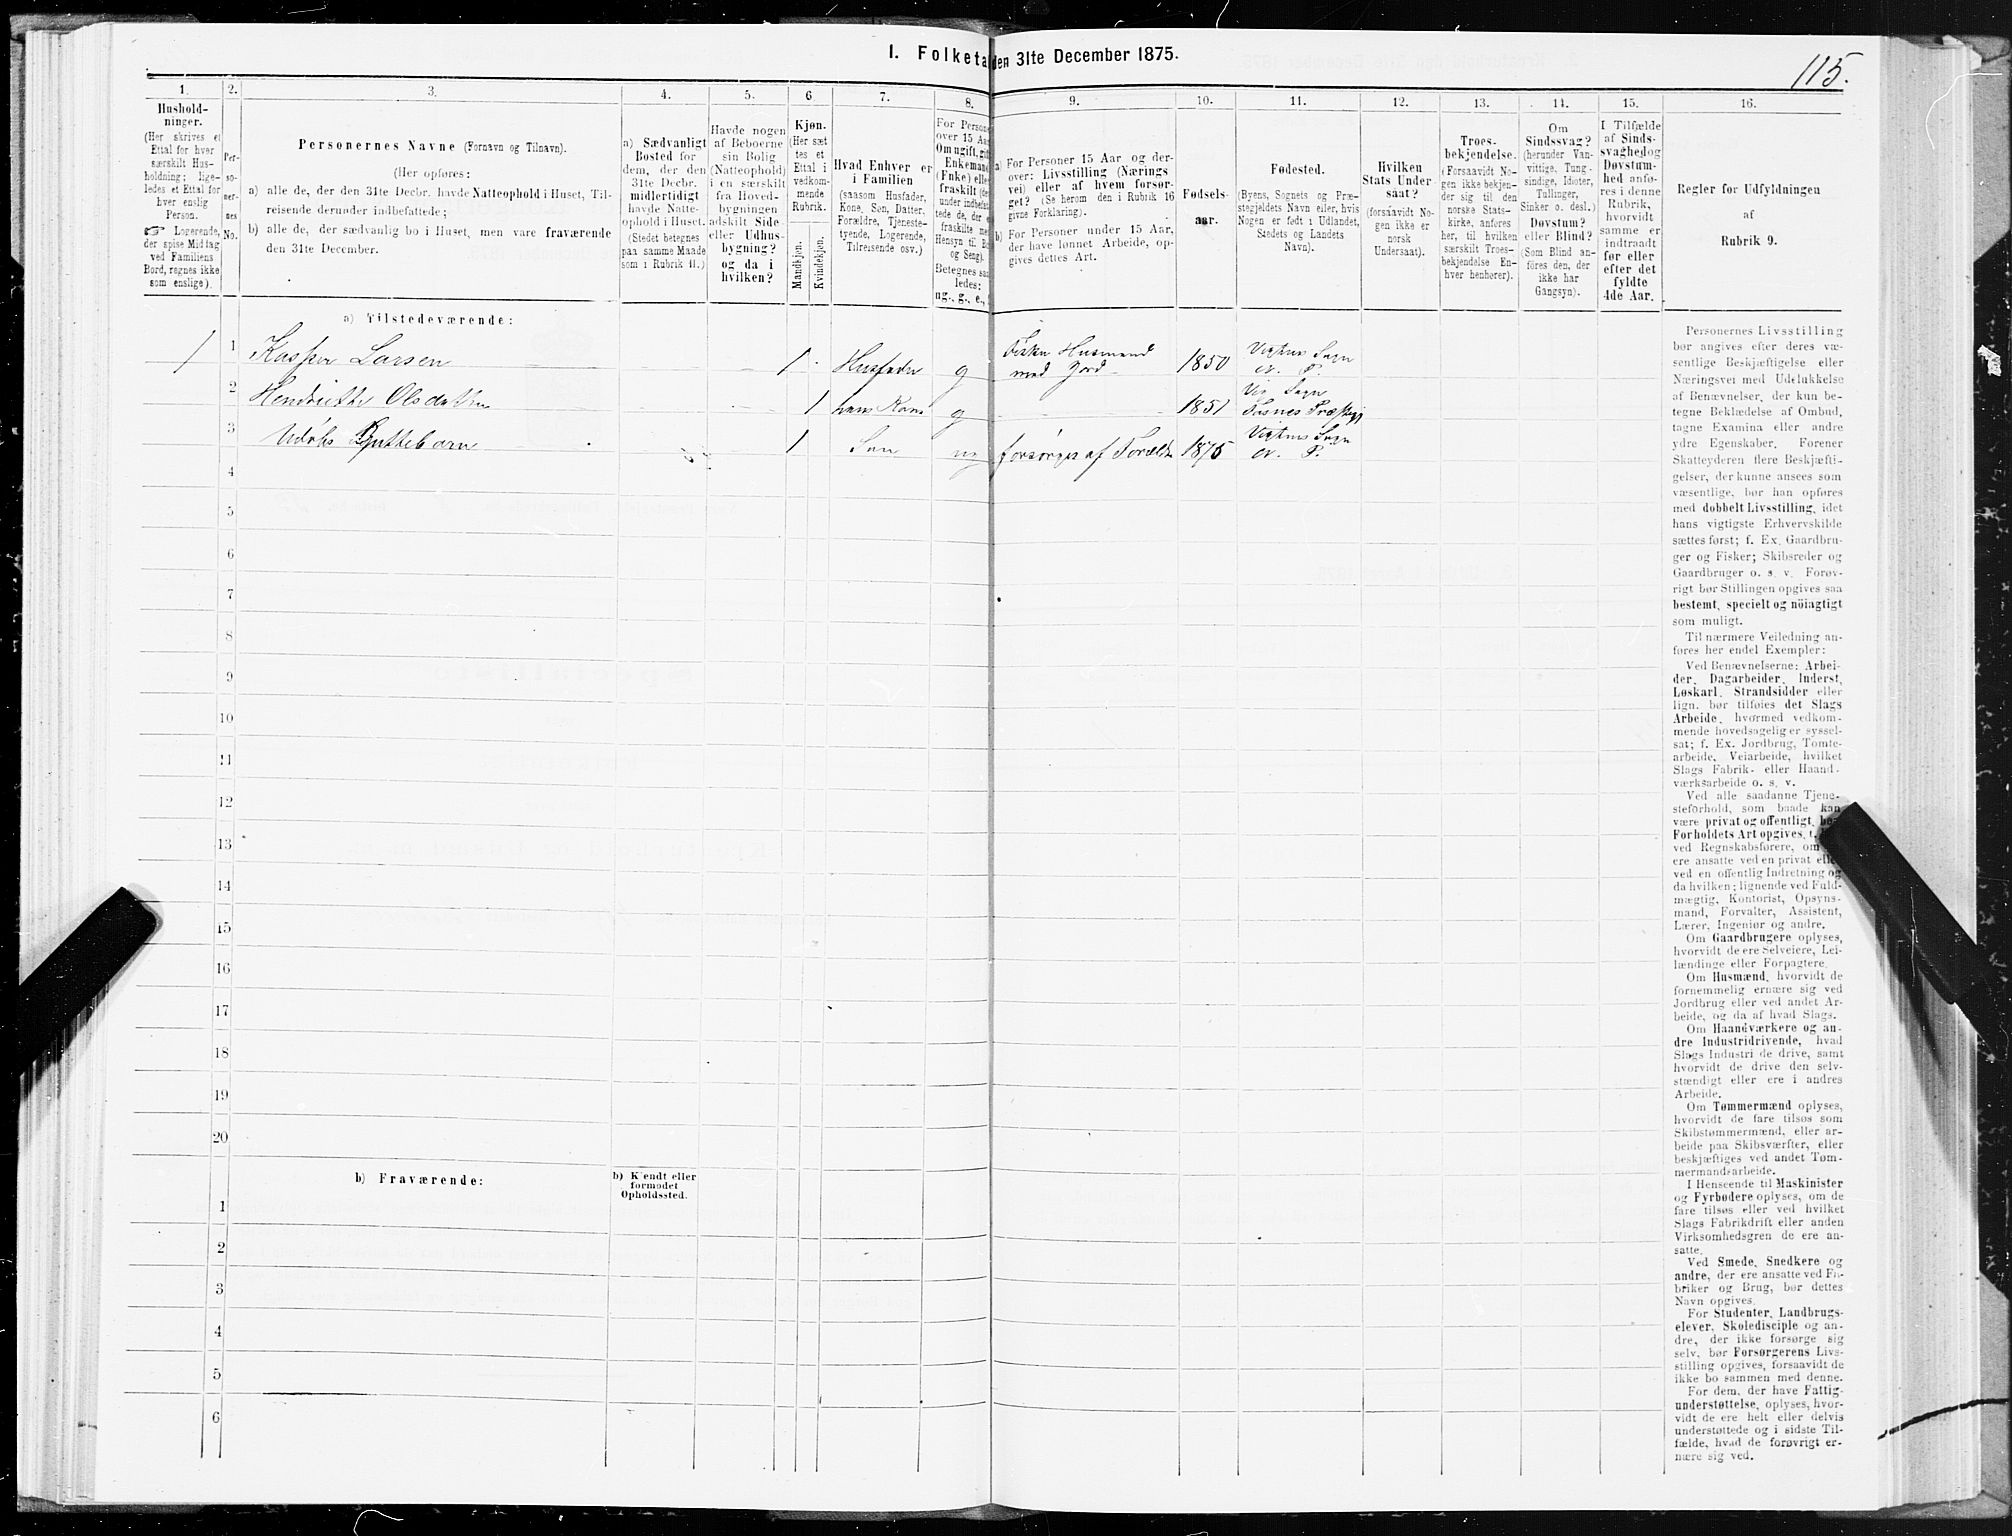 I. Folketa den 31te December 1875.
115.
1.
Hushold-
ninger.
(Her skrives et
Ettal for hver
særskilt Hus-
holdning; lige-
ledes et Ettal for
hver enslig
Person.
Logerende,
der spise Middag
ved Familiens
Bord, regnes ikke
som enslige).
2.
Per-
so-
ner-
nes
No.
3.
Personernes Navne (Fornavn og Tilnavn).
(Her opføres:
a) alle de, der den 31te Decbr. havde Natteophold i Huset, Til-
reisende derunder indbefattede;
b) alle de, der sædvanlig bo i Huset, men vare fraværende
den 31te December.
4.
a) Sædvanligt
Bosted for
dem, der den
31te Decbr.
midlertidigt
havde Natte-
ophold i Huset.
(Stedet betegnes
paa samme Maade
som i Rubrik 11.)
5.
Havde nogen
af Beboerne
sin Bolig
(Natteophold)
i en særskilt
fra Hoved-
bygningen
adskilt Side
eller Udhus-
bygning?
og da i
hvilken?
6
Kjøn.
(Her sæt
tes et
Ettal i
vedkom-
mende
Rubrik.
Mandkjøn.
Kvindekjøn.
7.
Hvad Enhver er
i Familien
(saasom Husfader,
Kone, Søn, Datter,
Forældre, Tjeneste-
tyende, Logerende,
Tilreisende osv.)
8.
For Persone
over 15 Aar
Om ugift, gift
Enkemand
(Enke) elle
fraskilt (de
under indbefat
tede de, der e
fraskilte me
Hensyn til Bo
og Seng).
Betegnes saa
ledes:
ug., g., e.,
9.
a) For Personer 15 Aar og der-
over: Livsstilling (Nærings
vei) eller af hvem forsør-
get? (Se herom den i Rubrik 16
givne Forklaring).
b) For Personer under 15 Aar,
der have lønnet Arbeide, op-
gives dettes Art.
10.
Fødsels-
aar.
11.
Fødested.
(Byens, Sognets og Præ-
stegjeldets Navn eller, hvis
Nogen er født i Udlandet,
Stedets og Landets
Navn).
12.
Hvilken
Stats Under-
saat?
(forsaavidt No-
gen ikke er
norsk
Undersaat).
13.
Troes-
bekjendelse.
(Forsaavidt No-
gen ikke bekjen-
der sig til den
norske Stats-
kirke, anføres
her, til hvilken
særskilt Troes-
bekjendelse En-
hver henhører).
14.
Om
Sindssvag?
(herunder Van-
vittige, Tung-
sindige, Idioter,
Tullinger,
Sinker o. desl.)
Døvstum?
eller Blind?
(Som Blind an-
føres den, der
ikke har
Gangsyn).
15.
I Tilfælde
af Sinds-
svaghed og
Døvstum-
hed anfø-
res i denne
Rubrik,
hvorvidt
samme er
indtraadt
før eller
efter det
fyldte
4de Aar.
16.
Regler for Udfyldningen
af
Rubrik 9.
a) Tilstedeværende:
1 1 Kasper Larsen 1 Husfader g Fisker Husmand med Jord 1850 Vigtens Sogn
2 Hendriette Olsdatter 1 hans Kone g 1851 Vig Sogn Fosnes Præstegj
3 Udøbt Guttebarn 1 Søn ug forsørges af Forældr 1875 Vigtens Sogn
4
5
6
7
8
9
10
11
12
13
14
15
16
17
18
19
20
b) Fraværende:
b) Kjendt eller
formodet
Opholdssted.
1
2
3
4
5
6
Personernes Livsstilling
bør angives efter deres væ-
sentlige Beskjæftigelse eller
Næringsvei med Udelukkelse
af Benævnelser, der kun be-
tegne Beklædelse af Ombud,
tagne Examina eller andre
ydre Egenskaber. Forener
Skatteyderen flere Beskjæfti-
gelser, der kunne ansees som
væsentlige, bør han opføres
med dobbelt Livsstilling, idet
hans vigtigste Erhvervskilde
sættes først; f. Ex. Gaardbru-
ger og Fisker; Skibsreder og
Gaardbruger o. s. v. Forøv-
rigt bør Stillingen opgives saa
bestemt, specielt og nöiagtigt
som muligt.
Til nærmere Veiledning an-
føres her endel Exempler:
Ved Benævnelserne: Arbei-
der, Dagarbeider, Inderst,
Løskarl, Strandsidder eller
lign. bør tilføies det Slags
Arbeide, hvormed vedkom-
mende hovedsagelig er syssel-
sat; f. Ex. Jordbrug, Tomte-
arbeide, Veiarbeide, hvilket
Slags Fabrik- eller Haand-
værksarbeide o. s. v.
Ved alle saadanne Tjene-
steforhold, som baade kan
være privat og offentlig, bør
Forholdets Art opgives, f.
ved Regnskabsførere, om
ere ansatte ved en privat eller
ved en offentlig Indretning og
da hvilken; lignende ved Fuld-
mægtig, Kontorist, Opsyns-
mand, Forvalter, Assistent,
Lærer, Ingeniør og andre.
Om Gaardbrugere oplyses,
hvorvidt de ere Selveiere, Lei-
lændinge eller Forpagtere.
Om Husmænd, hvorvidt de
fornemmelig ernære sig ved
Jordbrug eller ved andet Ar-
beide, og da af hvad Slags.
Om Haandværkere og an-
dre Industridrivende, hvad
Slags Industri de drive, samt
hvorvidt de drive den selv-
stændigt eller ere i andres
Arbeide.
Om Tømmermænd oplyses,
hvorvidt de fare tilsøs som
Skibstømmermænd, eller ar-
beide paa Skibsværfter, eller
beskjæftiges ved andet Tøm-
mermandsarbeide.
I Henseende til Maskinister
og Fyrbødere oplyses, om de
fare tilsøs eller ved hvilket
Slags Fabrikdrift eller anden
Virksomhedsgren de ere an-
satte.
Ved Smede, Snedkere og
andre, der ere ansatte ved Fa-
briker og Brug, bør dettes
Navn opgives.
For Studenter, Landbrugs-
elever, Skoledisciple og an-
dre, der ikke forsørge sig
selv, bør Forsørgerens Livs-
stilling opgives, forsaavidt de
ikke bo sammen med denne.
For dem, der have Fattig-
understøttelse, oplyses, hvor-
vidt de ere helt eller delvis
understøttede og i sidste Til-
fælde, hvad de forøvrigt er-
nære sig ved.